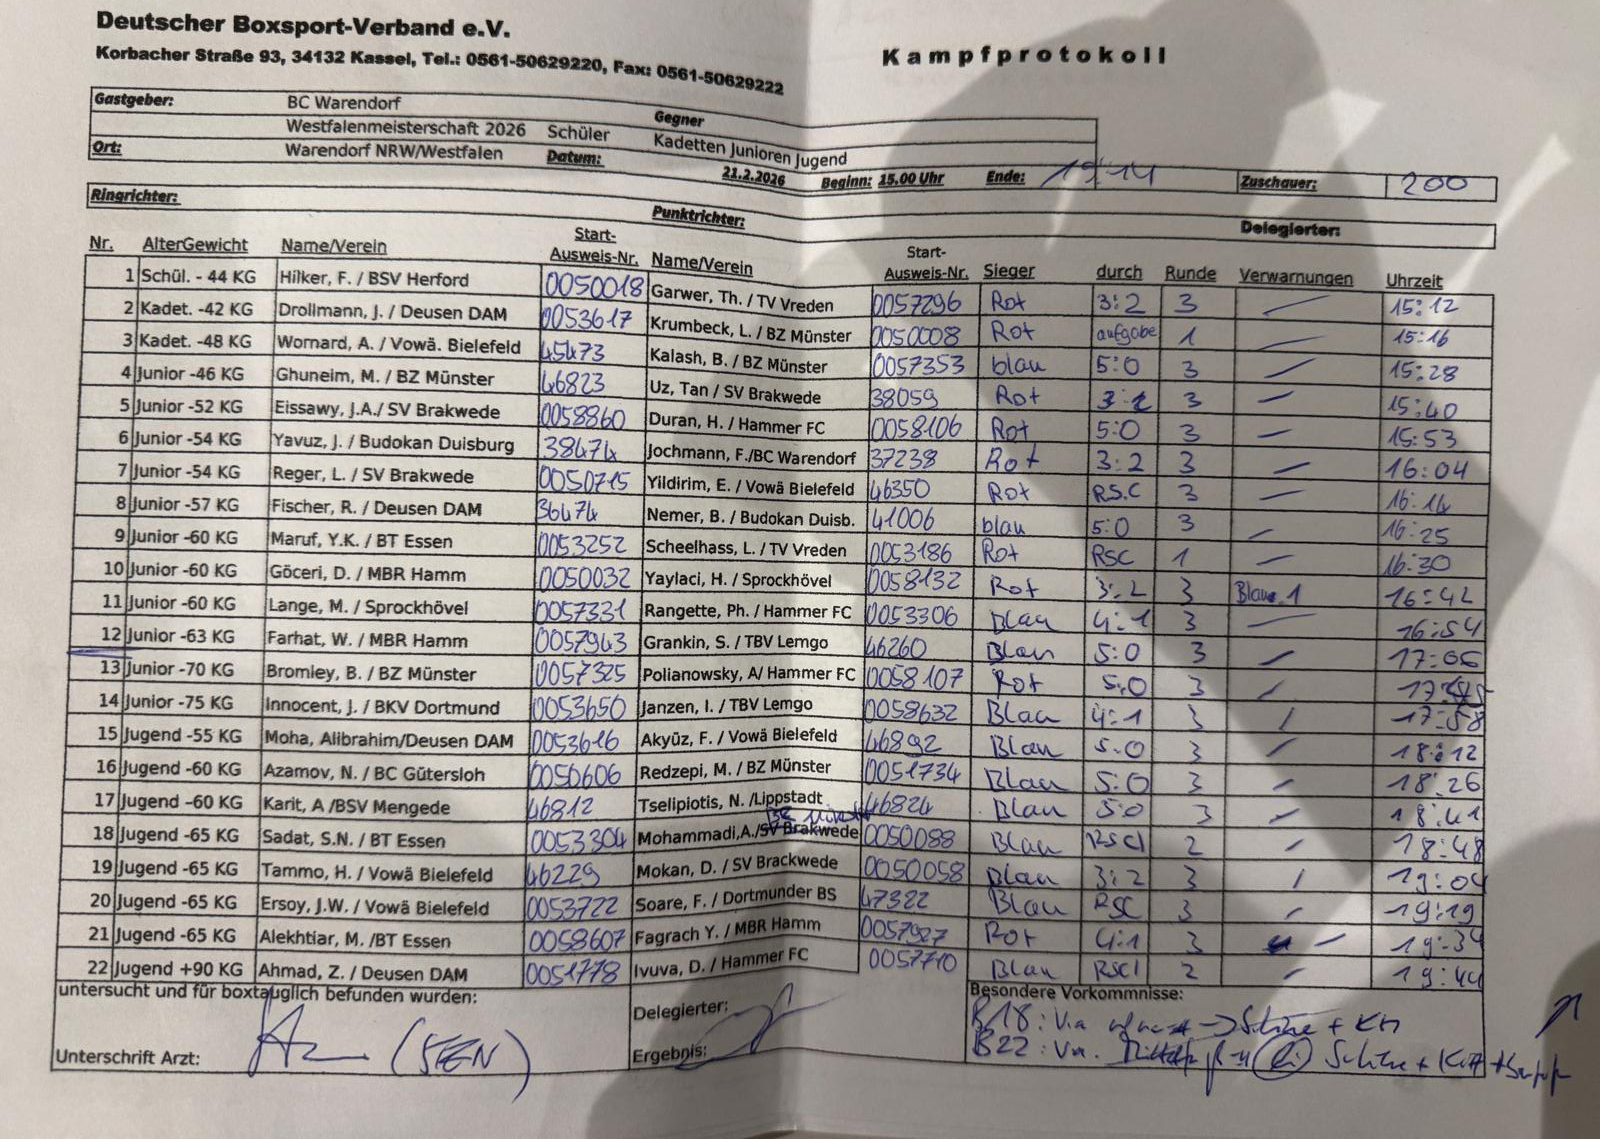 Deutscher Boxsport-Verband e.V.
Korbacher Straße 93, 34132 Kassel, Tel.: 0561-50629220, Fax: 0561-50629222
Kampfprotokoll
Gastgeber: BC Warendorf Gegner
Westfalenmeisterschaft 2026 Schüler Kadetten Junioren Jugend
Ort: Warendorf NRW/Westfalen Datum: 21.2.2026 Beginn: 15.00 Uhr Ende: Zuschauer: 200
Ringrichter: Punktrichter: Delegierter:
Nr. AlterGewicht Name/Verein Start-Ausweis-Nr. Name/Verein Start-Ausweis-Nr. Sieger durch Runde Verwarnungen Uhrzeit
1 Schül. - 44 KG Hilker, F. / BSV Herford 0050018 Garwer, Th. / TV Vreden 0057296 Rot 3:2 3 — 15:12
2 Kadet. -42 KG Drollmann, J. / Deusen DAM 0053617 Krumbeck, L. / BZ Münster 0050008 Rot aufgabe 1 — 15:16
3 Kadet. -48 KG Wornard, A. / Vowä. Bielefeld 45473 Kalash, B. / BZ Münster 0057353 blau 5:0 3 — 15:28
4 Junior -46 KG Ghuneim, M. / BZ Münster 46823 Uz, Tan / SV Brakwede 38059 Rot 3:2 3 — 15:40
5 Junior -52 KG Eissawy, J.A./ SV Brakwede 0058860 Duran, H. / Hammer FC 0058106 Rot 5:0 3 — 15:53
6 Junior -54 KG Yavuz, J. / Budokan Duisburg 38474 Jochmann, F./BC Warendorf 37238 Rot 3:2 3 — 16:04
7 Junior -54 KG Reger, L. / SV Brakwede 0050715 Yildirim, E. / Vowä Bielefeld 46350 Rot RSC 3 — 16:14
8 Junior -57 KG Fischer, R. / Deusen DAM 36474 Nemer, B. / Budokan Duisb. 41006 blau 5:0 3 — 16:25
9 Junior -60 KG Maruf, Y.K. / BT Essen 0053252 Scheelhass, L. / TV Vreden 0053186 Rot RSC 1 — 16:30
10 Junior -60 KG Göceri, D. / MBR Hamm 0050032 Yaylaci, H. / Sprockhövel 0058132 Rot 3:2 3 Blau 1 16:42
11 Junior -60 KG Lange, M. / Sprockhövel 0057331 Rangette, Ph. / Hammer FC 0053306 Blau 4:1 3 — 16:54
12 Junior -63 KG Farhat, W. / MBR Hamm 0057943 Grankin, S. / TBV Lemgo 46260 Blau 5:0 3 — 17:06
13 Junior -70 KG Bromley, B. / BZ Münster 0057325 Polianowsky, A/ Hammer FC 0058107 Rot 5:0 3 —
14 Junior -75 KG Innocent, J. / BKV Dortmund 0053650 Janzen, I. / TBV Lemgo 0058632 Blau 4:1 3 / 17:58
15 Jugend -55 KG Moha, Alibrahim/Deusen DAM 0053616 Akyüz, F. / Vowä Bielefeld 46892 Blau 5:0 3 — 18:12
16 Jugend -60 KG Azamov, N. / BC Gütersloh 0050606 Redzepi, M. / BZ Münster 0051734 Blau 5:0 3 — 18:26
17 Jugend -60 KG Karit, A /BSV Mengede 46812 Tselipiotis, N. /Lippstadt 46824 Blau 5:0 3 — 18:41
18 Jugend -65 KG Sadat, S.N. / BT Essen 0053304 Mohammadi,A./SV Brakwede 0050088 Blau RSCI 2 — 18:48
19 Jugend -65 KG Tammo, H. / Vowä Bielefeld 46229 Mokan, D. / SV Brackwede 0050058 Blau 3:2 3 / 19:04
20 Jugend -65 KG Ersoy, J.W. / Vowä Bielefeld 0053722 Soare, F. / Dortmunder BS 47322 Blau RSC 3 — 19:19
21 Jugend -65 KG Alekhtiar, M. /BT Essen 0058607 Fagrach Y. / MBR Hamm 0057927 Rot 4:1 3 — 19:34
22 Jugend +90 KG Ahmad, Z. / Deusen DAM 0051778 Ivuva, D. / Hammer FC 0057710 Blau RSCI 2 — 19:44
untersucht und für boxtauglich befunden wurden: Delegierter: Besondere Vorkommnisse:
B18: Via + KH
Unterschrift Arzt: (STEN) Ergebnis: B22: